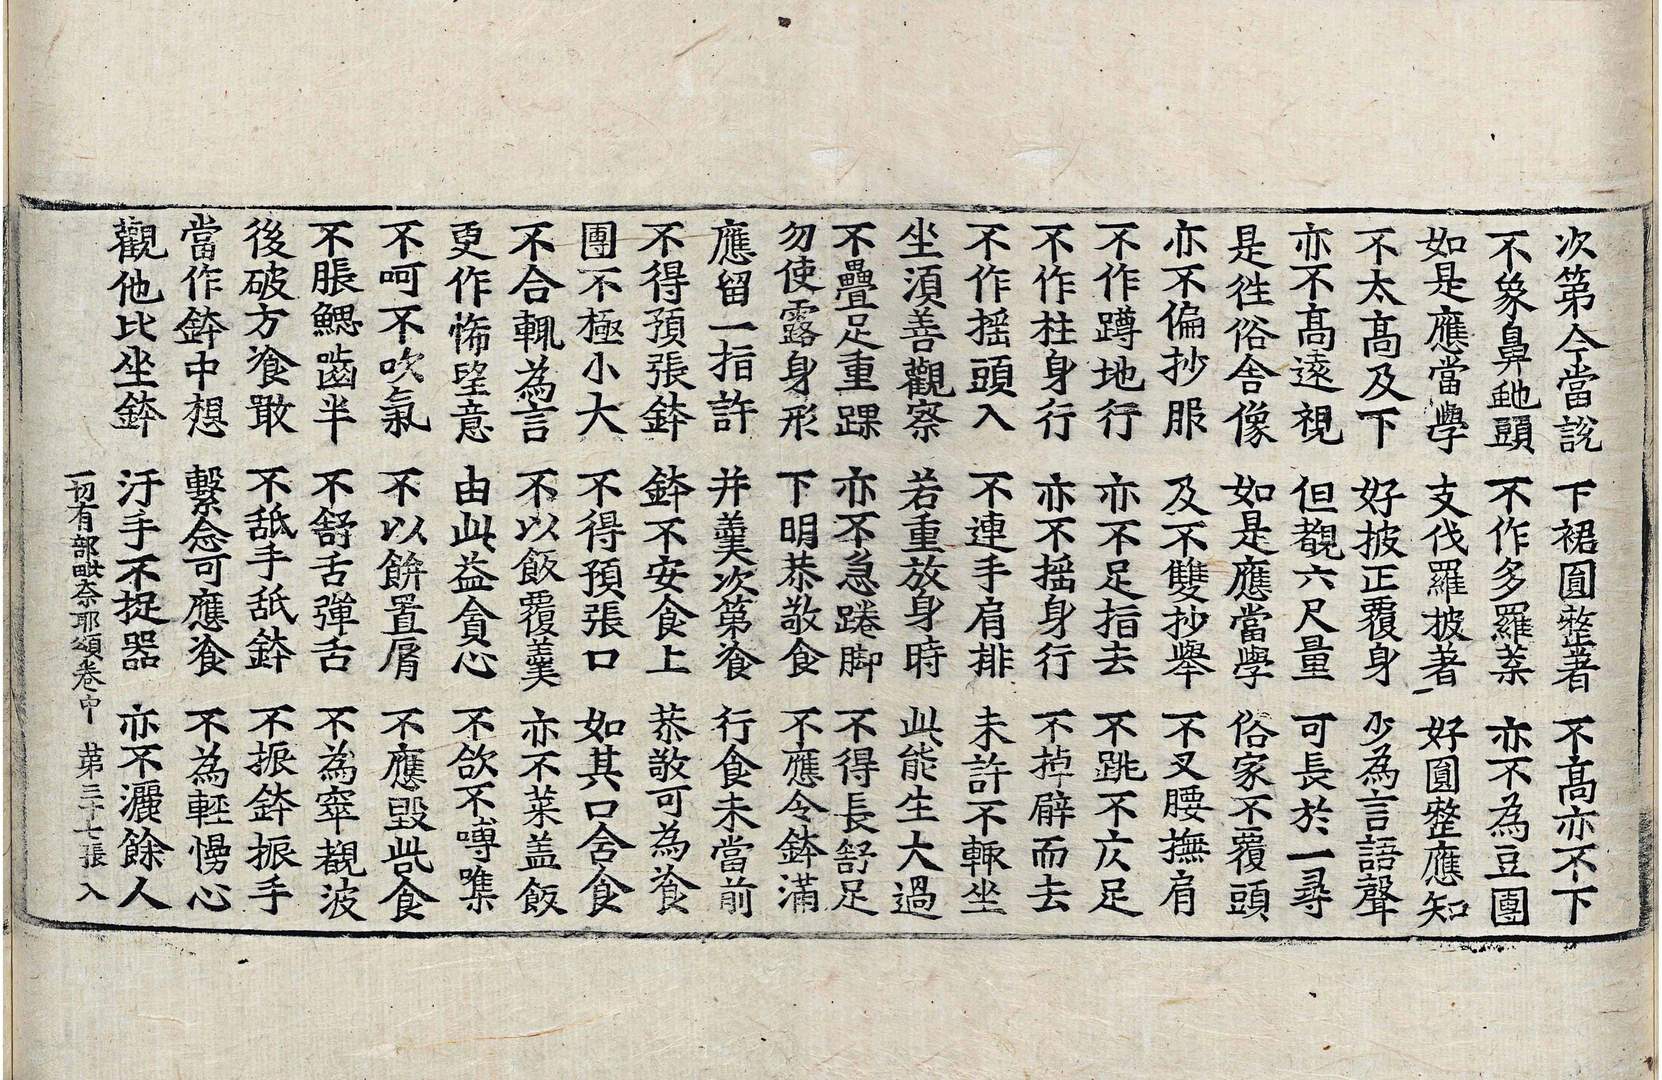 次第今當說 下裙圓整著 不高亦不下
不象鼻虵頭 不作多羅葉 亦不為豆團
如是應當學 支伐羅披著 好圓整應知
不太高及下 好披正覆身 少為言語聲
亦不高遠視 但覩六尺量 可長於一尋
是徃俗舍像 如是應當學 俗家不覆頭
亦不偏抄服 及不雙抄舉 不叉腰撫肩
不作蹲地行 亦不足指去 不跳不仄足
不作柱身行 亦不摇身行 不掉臂而去
不作摇頭入 不連手肩排 未許不輙坐
坐須善觀察 若重放身時 此能生大過
不疊足重踝 亦不急踡脚 不得長舒足
勿使露身形 下明恭敬食 不應令鉢滿
應留一指許 并羹次第飡 行食未當前
不得預張鉢 鉢不安食上 恭敬可為飡
團不極小大 不得預張口 如其口含食
不合輙為言 不以飯覆羹 亦不菜盖飯
更作悕望意 由此益貪心 不欱不嚩噍
不呵不吹氣 不以餅置屑 不應毀呰食
不脹鰓齒半 不舒舌彈舌 不為窣覩波
後破方飡噉 不舐手舐鉢 不振鉢振手
當作鉢中想 繫念可應飡 不為輕慢心
觀他比坐鉢 汙手不捉器 亦不灑餘人
一切有部毗奈耶頌卷中 第三十七張 入